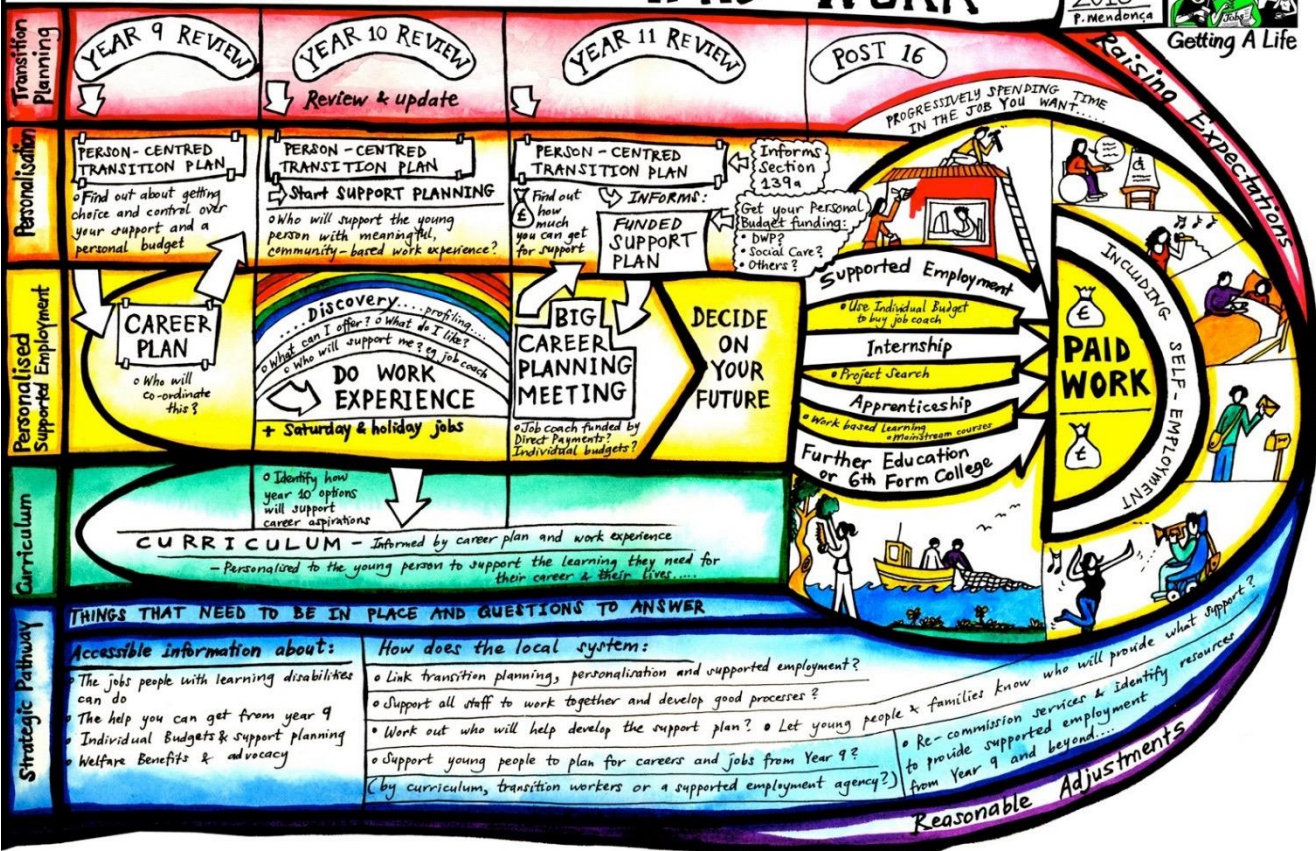 WORK
2010
P.Mendonça
Jobs
Getting A Life
Transition
Planning
YEAR 9 REVIEW
YEAR 10 REVIEW
Review & update
YEAR 11 REVIEW
POST 16
Raising Expectations
PROGRESSIVELY SPENDING TIME
IN THE JOB YOU WANT.....
Personalisation
PERSON-CENTRED
TRANSITION PLAN
o Find out about getting
choice and control over
your support and a
personal budget
PERSON-CENTRED
TRANSITION PLAN
Start SUPPORT PLANNING
o Who will support the young
person with meaningful,
community-based work experience?
PERSON-CENTRED
TRANSITION PLAN
£
Find out
how
much
you can get
for support
INFORMS:
FUNDED
SUPPORT
PLAN
Informs
Section
139a
Get your Personal
Budget funding:
• DWP?
• Social Care?
• Others?
Personalised
Supported Employment
CAREER
PLAN
o Who will
co-ordinate
this?
.....Discovery....profiling...
o What can I offer? o What do I like?
o Who will support me? eg job coach
DO WORK
EXPERIENCE
+ Saturday & holiday jobs
BIG
CAREER
PLANNING
MEETING
o Job coach funded by
Direct Payments?
Individual budgets?
DECIDE
ON
YOUR
FUTURE
Supported Employment
• Use Individual Budget
to buy job coach
Internship
• Project Search
Apprenticeship
• Work based learning
• Mainstream courses
Further Education
or 6th Form College
£
PAID
WORK
£
INCLUDING SELF-EMPLOYMENT
Curriculum
o Identify how
year 10 options
will support
career aspirations
CURRICULUM - Informed by career plan and work experience
- Personalised to the young person to support the learning they need for
their career & their lives.....
Strategic Pathway
THINGS THAT NEED TO BE IN PLACE AND QUESTIONS TO ANSWER
Accessible information about:
o The jobs people with learning disabilities
can do
o The help you can get from year 9
o Individual Budgets & support planning
o Welfare Benefits & advocacy
How does the local system:
o Link transition planning, personalisation and supported employment?
o Support all staff to work together and develop good processes?
o Work out who will help develop the support plan? o Let young people & families know who will provide what support?
o Support young people to plan for careers and jobs from Year 9?
(by curriculum, transition workers or a supported employment agency?)
o Re-commission services & identify resources
to provide supported employment
from Year 9 and beyond....
Reasonable Adjustments